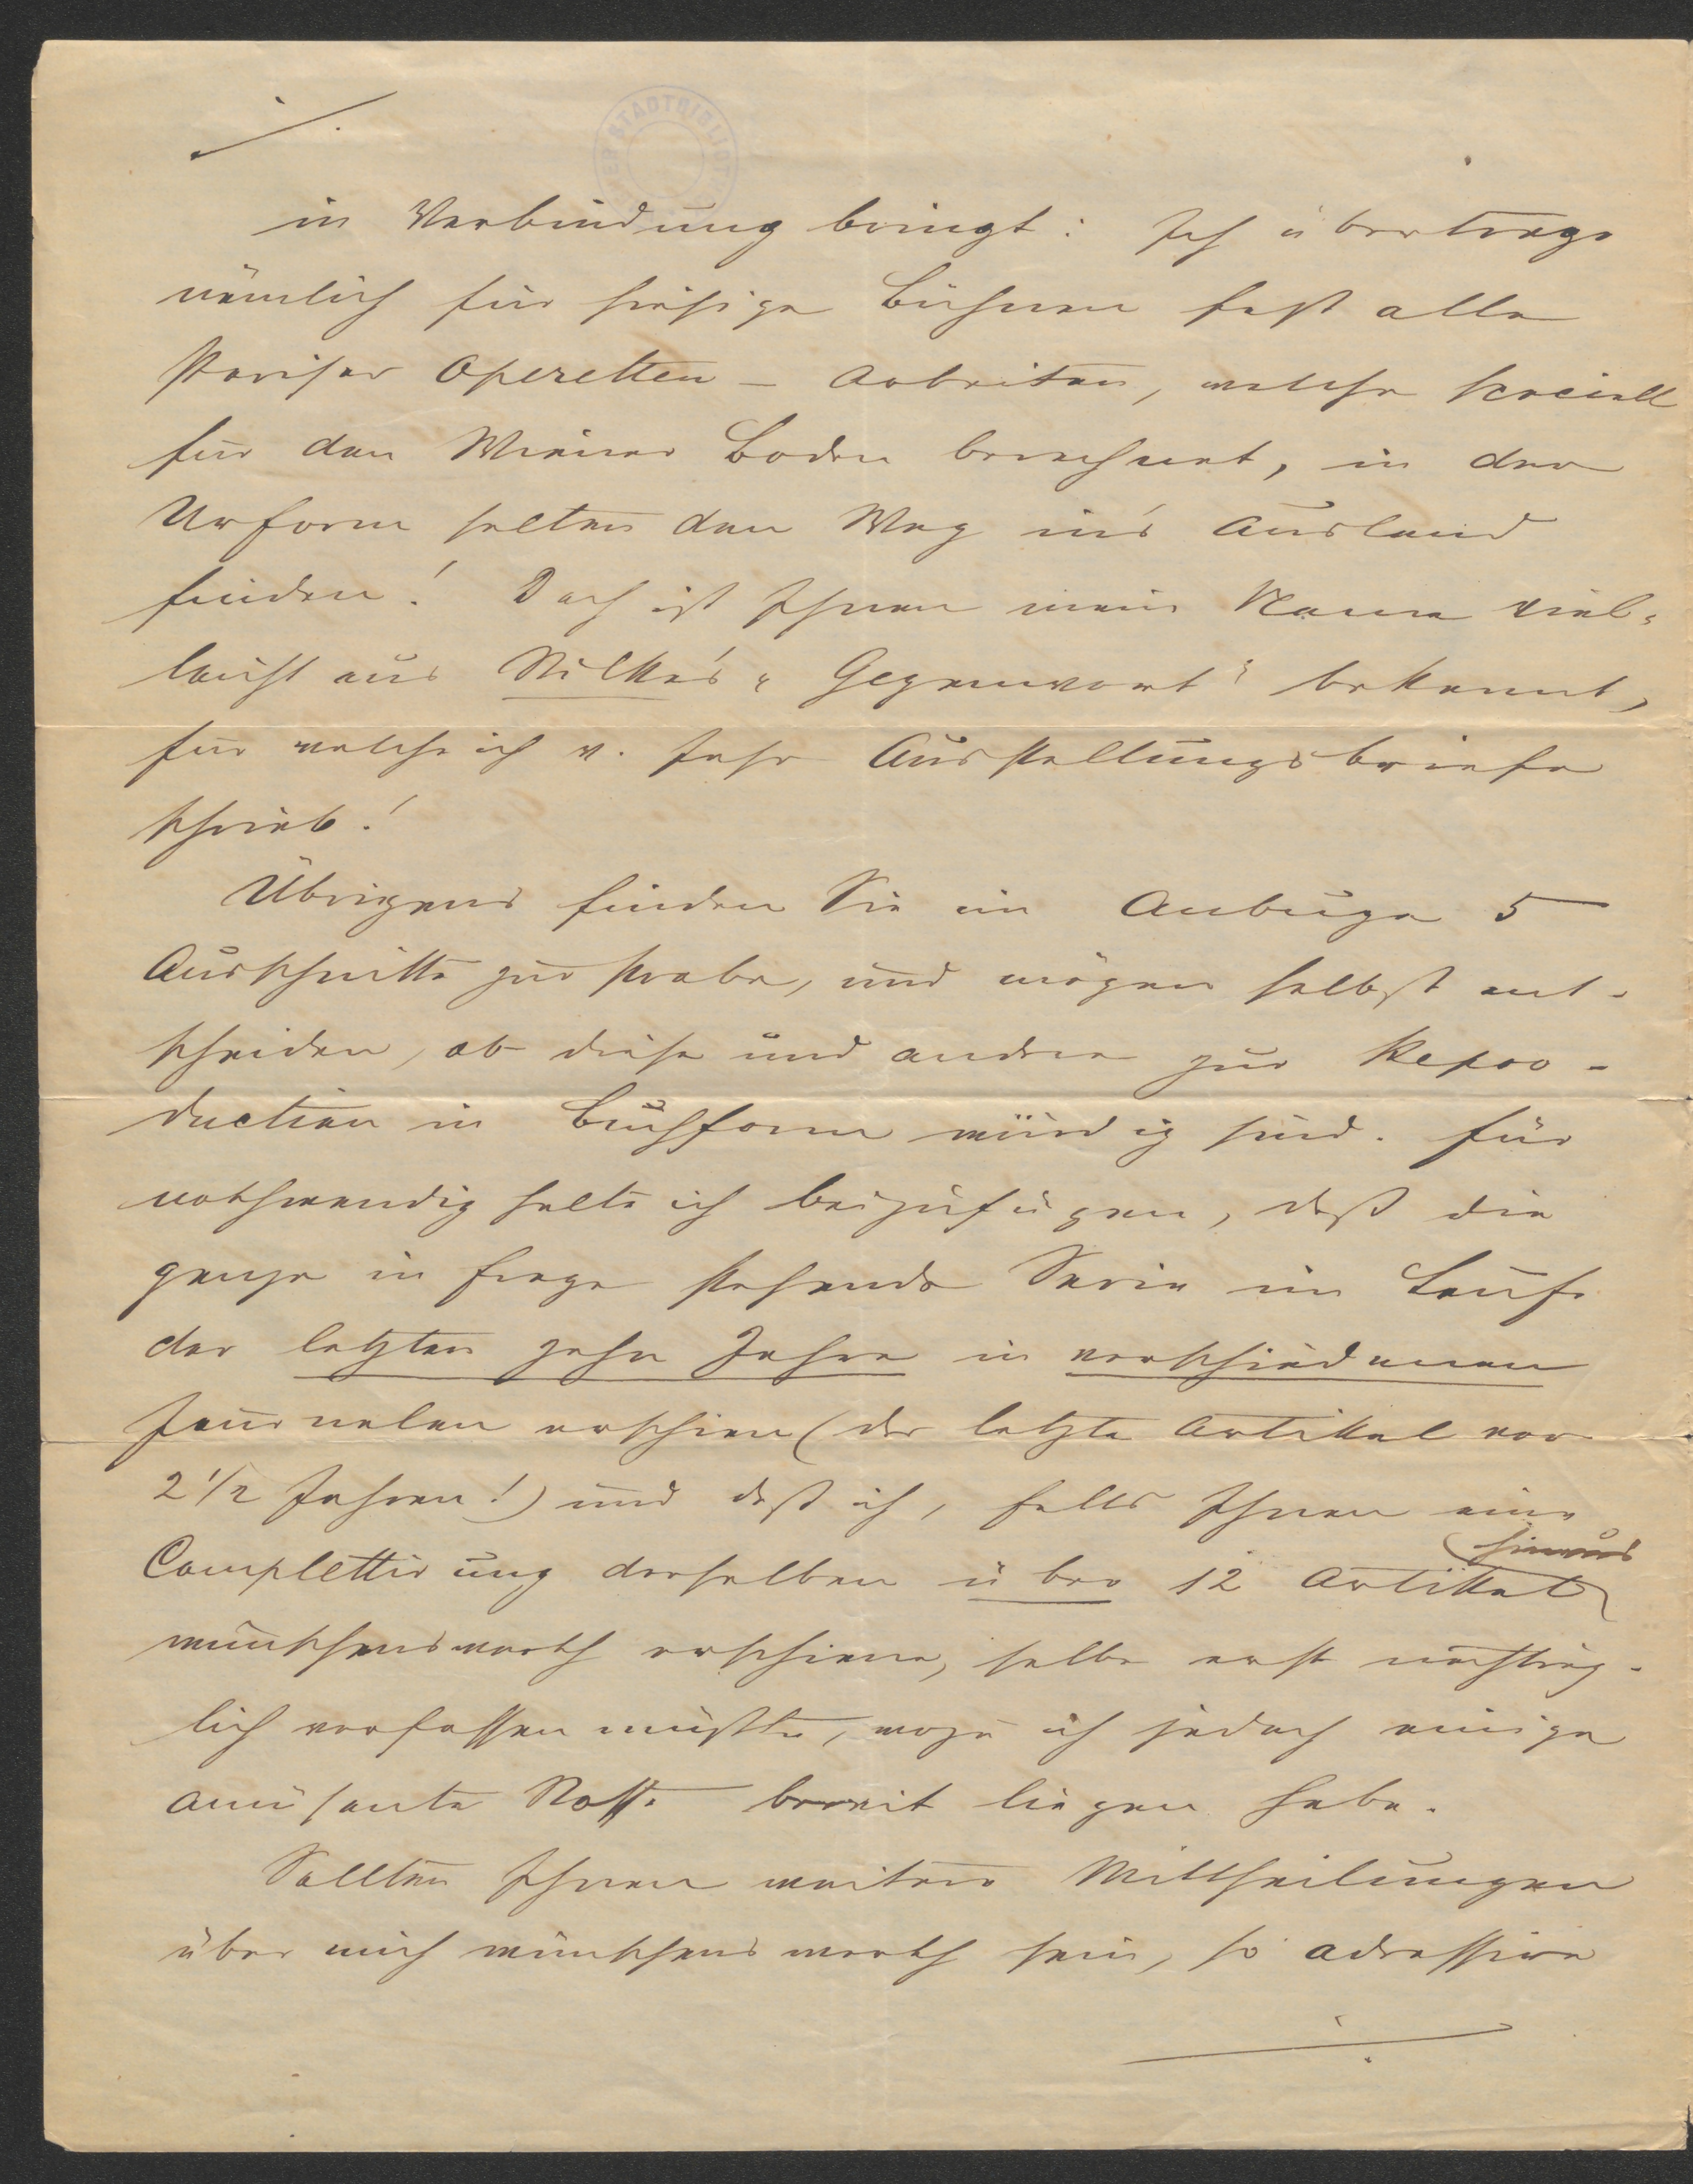 ./.
in Verbindung bringt: Ich übertrage
nämlich für hiesige Bühnen fast alle
Pariser Operetten - Arbeiten, welche speciell
für den Wiener Boden berechnet, in der
Urform selten den Weg in's Ausland
finden! Doch ist Ihnen mein Name viel-
leicht aus Stilke's "Gegenwart" bekannt,
für welche ich v. Jahr Ausstellungsbriefe
schrieb!
Übrigens finden Sie im Anbuge 5
Ausschnitte zur Probe, und mögen selbst ent-
scheiden, ob diese und andere zur Repro-
duction in Buchform würdig sind. Für
nothwendig halte ich beizufügen, daß die
ganze in Frage stehende Serie im Laufe
der letzten zehn Jahre in verschiedenen
Journalen erschien (der letzte Artikel vor
2 1/2 Jahren!) und daß ich, falls Ihnen eine
Complettirung derselben über 12 Artikel
wünschenswerth erschiene, selbe erst nachträg-
lich verfassen müßte, wozu ich jedoch einige
amüsante Stoffe bereit liegen habe.
Sollten Ihnen weitere Mittheilungen
über mich wünschenswerth sein, so adressire
./.